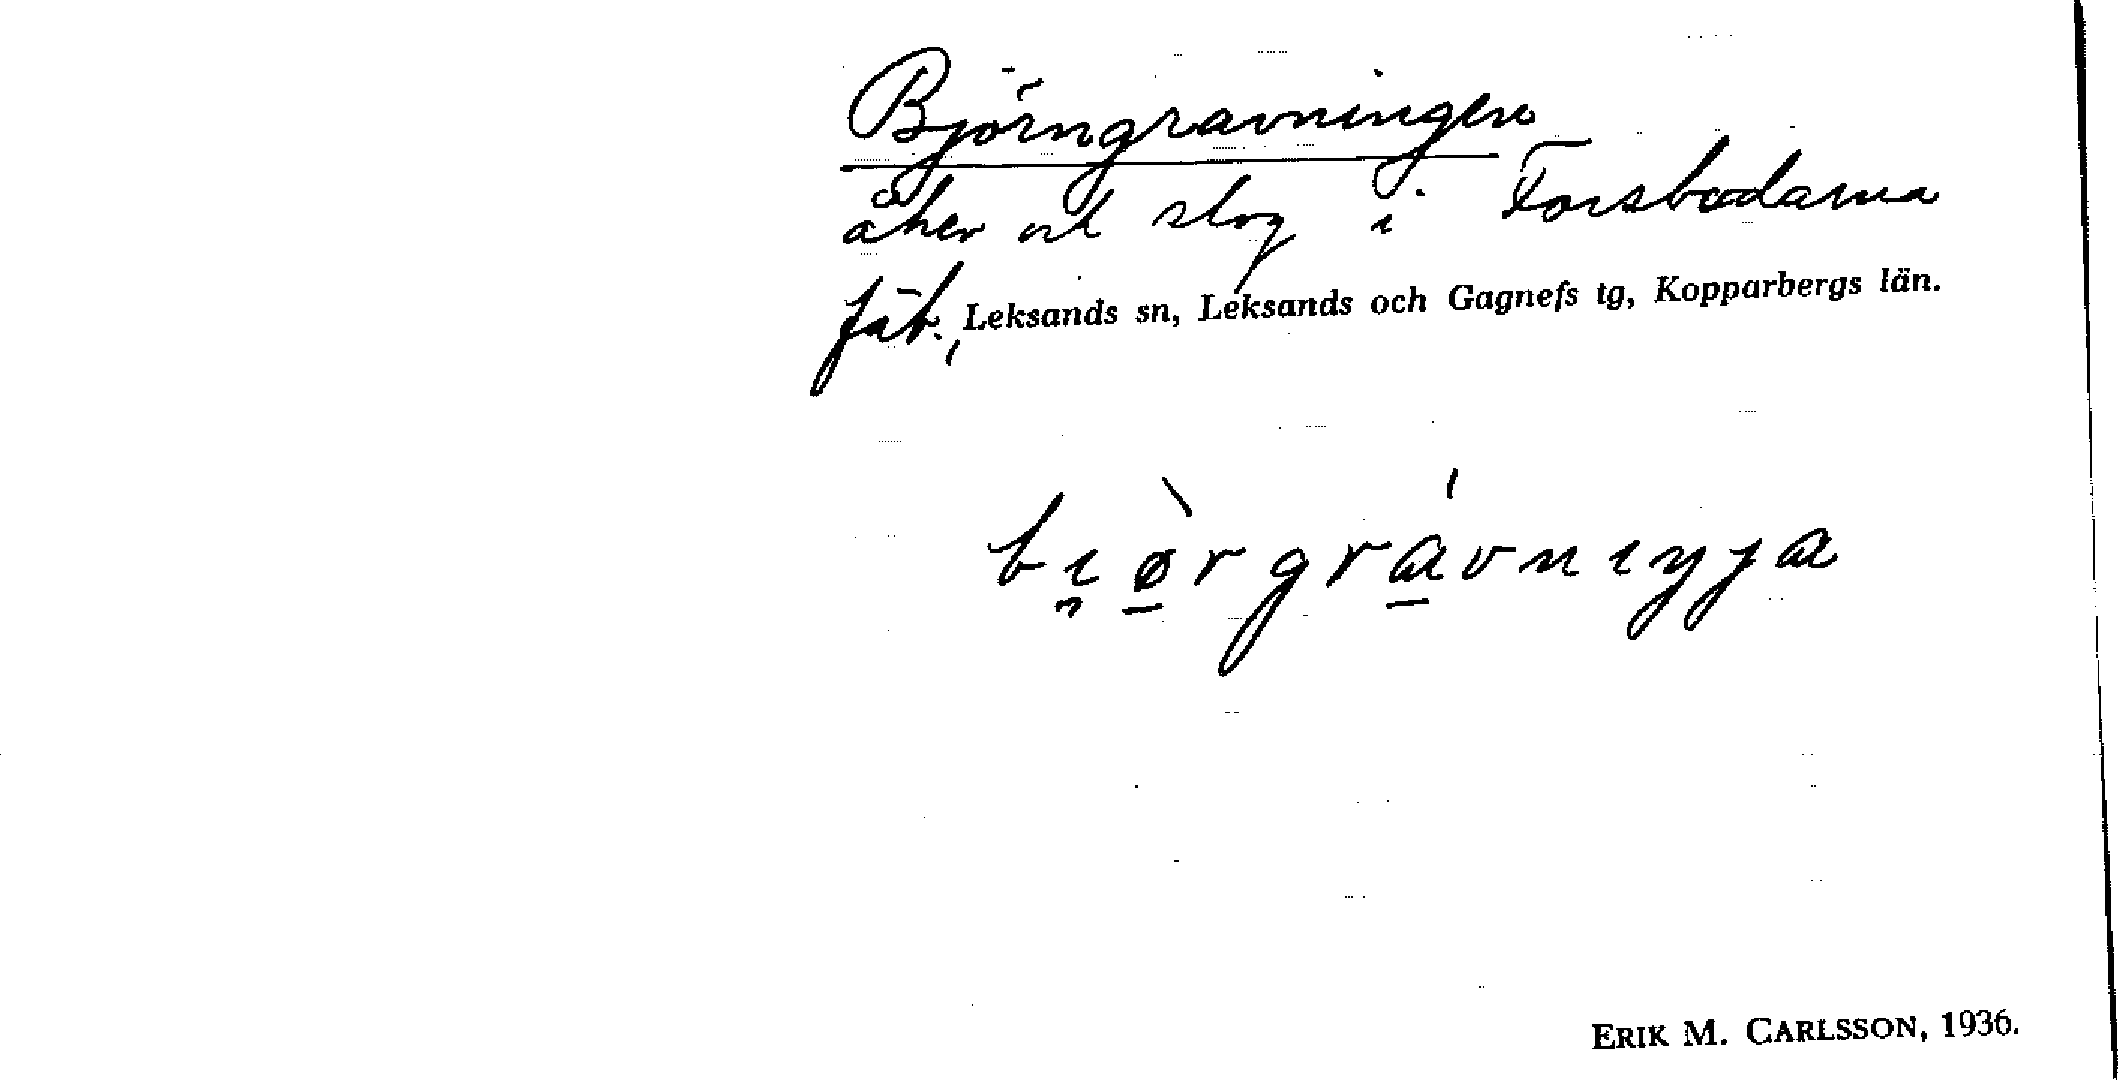 Björngravningen
åker och slog i Forsbodarna
fäb., Leksands sn, Leksands och Gagnefs tg, Kopparbergs län.
bı̯ø̠̀rgrа̠́vnıŋɡa
ERIK M. CARLSSON, 1936.